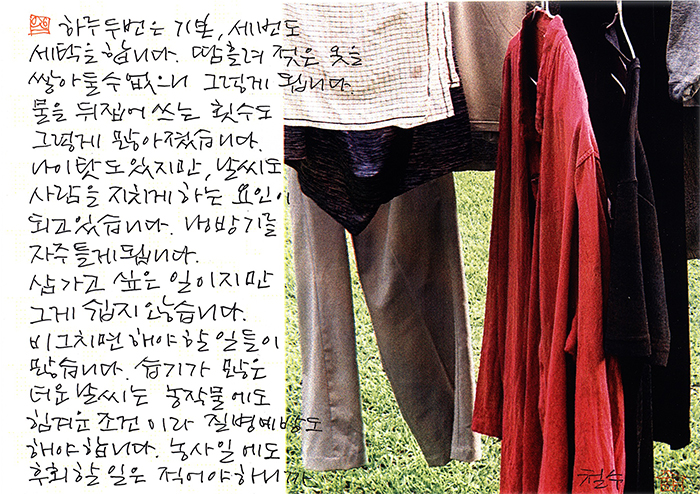 하루 두번은 기본, 세번도
세탁을 합니다. 땀흘려 젖은 옷을
쌓아둘수 없으니 그렇게 됩니다.
물을 뒤집어 쓰는 횟수도
그렇게 많아졌습니다.
나이 탓도 있지만, 날씨도
사람을 지치게 하는 요인이
되고있습니다. 냉방기를
자주 틀게 됩니다.
삼가고 싶은 일이지만
그게 쉽지 않습니다.
비그치면 해야 할 일들이
많습니다. 습기가 많은
더운 날씨는 농작물에도
힘겨운 조건이라 질병예방도
해야합니다. 농사일에도
후회할 일은 적어야 하니까
철수